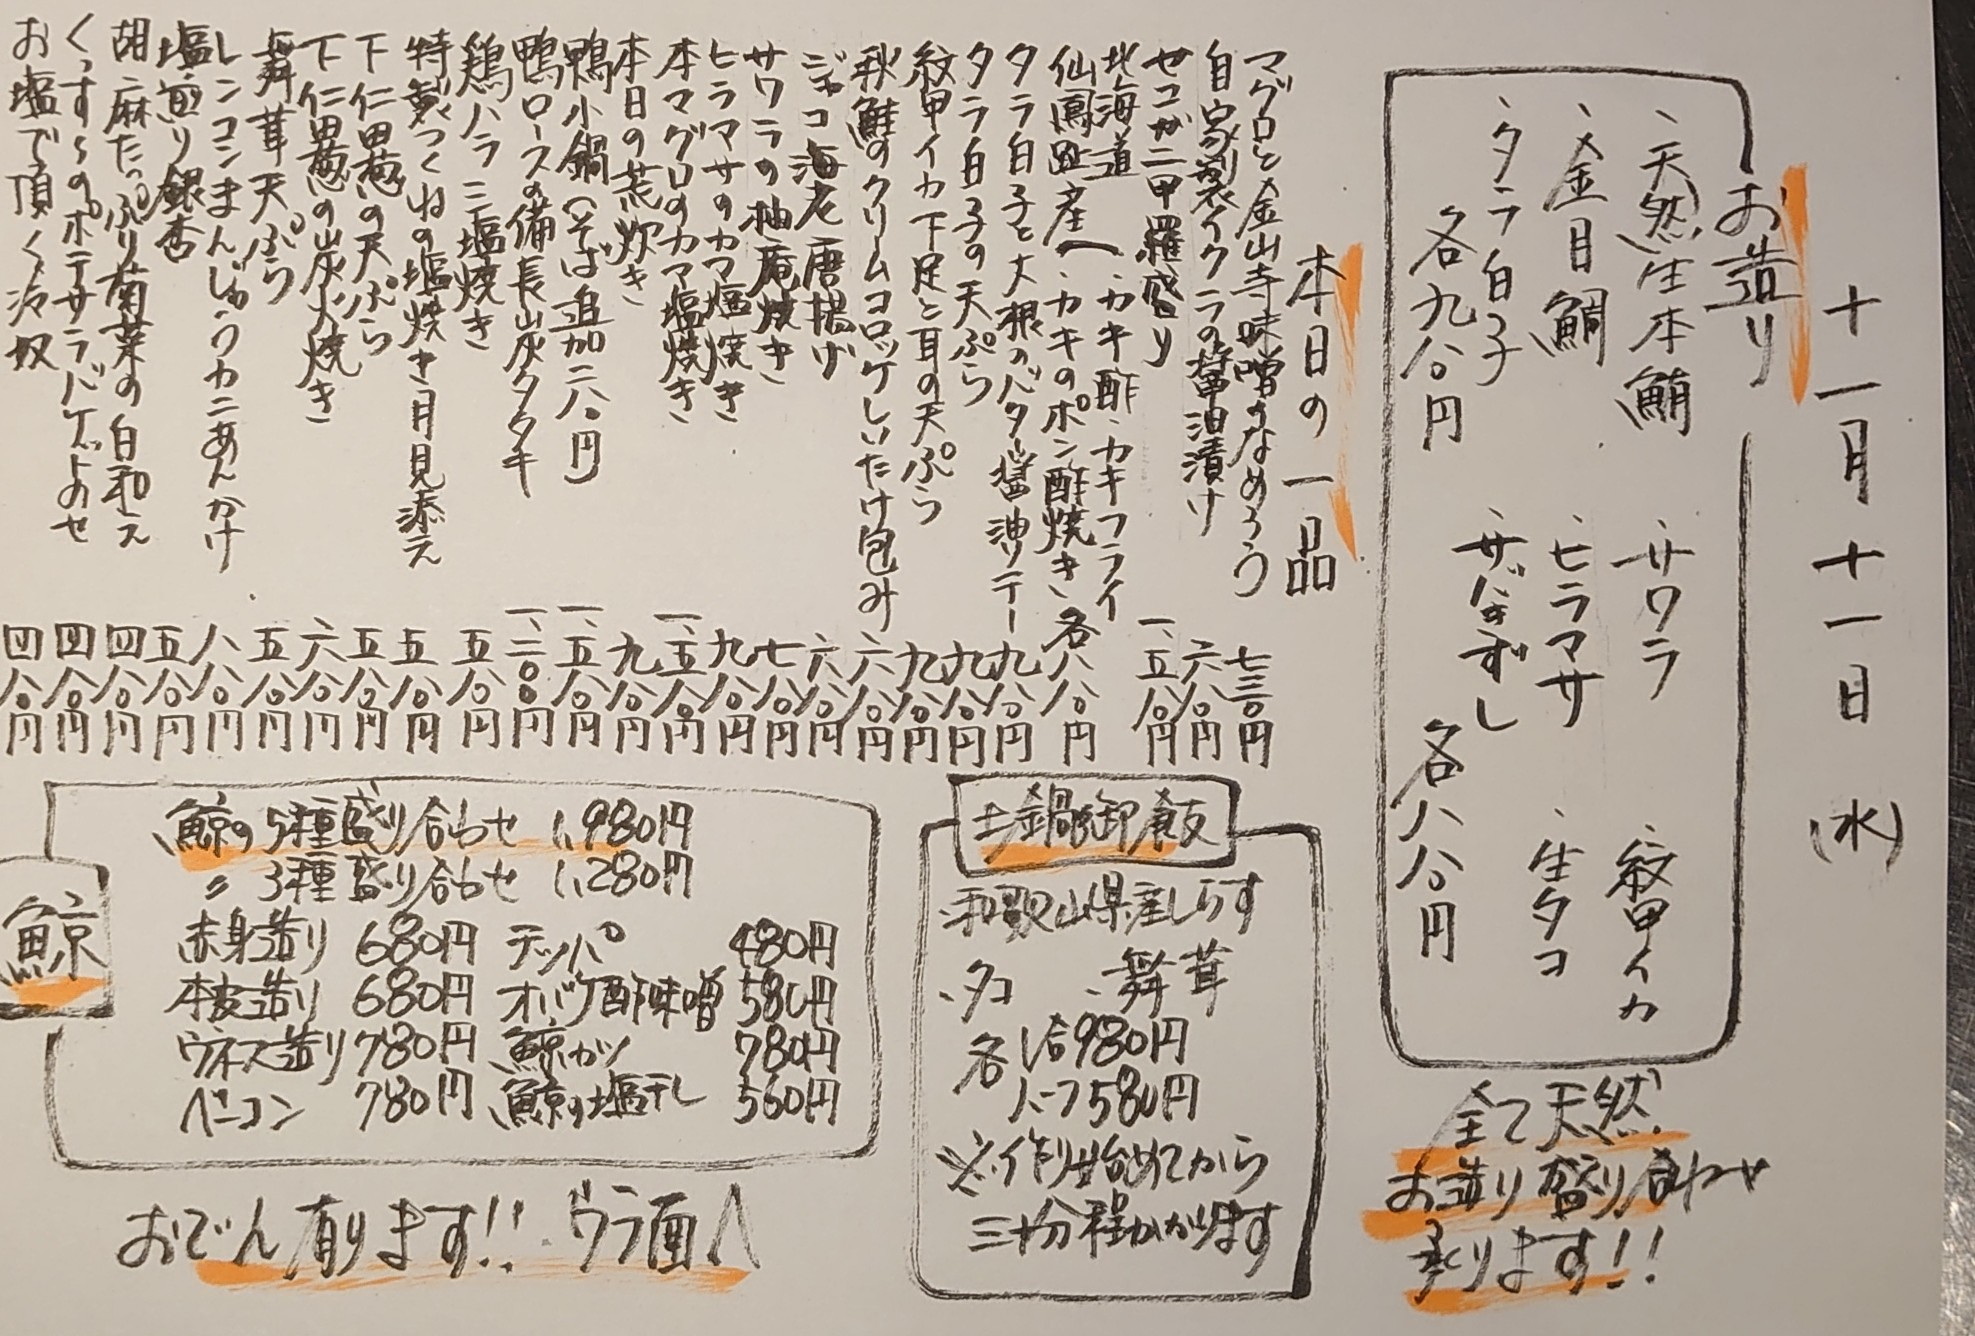 十一月十一日(水)
お造り
、天然生本鮪
、サワラ
、紋甲イカ
、金目鯛
、ヒラマサ
、生タコ
、タラ白子
、サバきずし
各九八〇円
各八八〇円
全て天然
お造り盛り合わせ
承ります!!
本日の一品
マグロと金山寺味噌のなめろう 七三〇円
自家製イクラの醤油漬け 六八〇円
セコガニ甲羅盛り 一、五八〇円
北海道 へ、カキ酢、カキフライ
仙鳳趾産へ、カキのポン酢焼き 各八八〇円
タラ白子と大根のバター醤油ソテー 九八〇円
タラ白子の天ぷら 九八〇円
紋甲イカ下足と耳の天ぷら 九八〇円
秋鮭のクリームコロッケしいたけ包み 六八〇円
ジャコ海老唐揚げ 六八〇円
サワラの柚庵焼き 七八〇円
ヒラマサのカマ塩焼き 九八〇円
本マグロのカマ塩焼き 一、五八〇円
本日の荒炊き 九八〇円
鴨小鍋(そば追加二八〇円 一、五八〇円
鴨ロースの備長炭タタキ 一、二〇〇円
鶏ハラミ塩焼き 五八〇円
特製つくねの塩焼き月見添え 五八〇円
下仁田葱の天ぷら 五八〇円
下仁田葱の炭火焼き 六八〇円
舞茸天ぷら 五八〇円
レンコンまんじゅうカニあんかけ 八八〇円
塩煎り銀杏 五八〇円
胡麻たっぷり菊菜の白和え 四八〇円
くっすんのポテサラバゲットのせ 四八〇円
お塩で頂く冷奴 四八〇円
土鍋御飯
、和歌山県産しらす
、タコ 、舞茸
各 1合980円
ハーフ580円
※作り始めてから
三十分程かかります
鯨
、鯨の5種盛り合わせ 1,980円
〃 3種盛り合わせ 1,280円
赤身造り 680円 テッパ 480円
本皮造り 680円 オバケ酢味噌 580円
ウネス造り 780円 鯨カツ 780円
ベーコン 780円 鯨の塩干し 560円
おでん有ります!! ウラ面へ